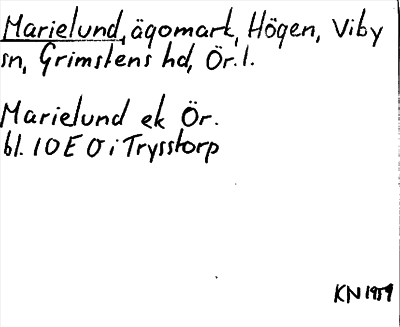 Marielund, ägomark, Högen, Viby
sn, Grimstens hd, Ör. l.
Marielund ek Ör.
bl. 10E 0i Trysstorp
KN 1959